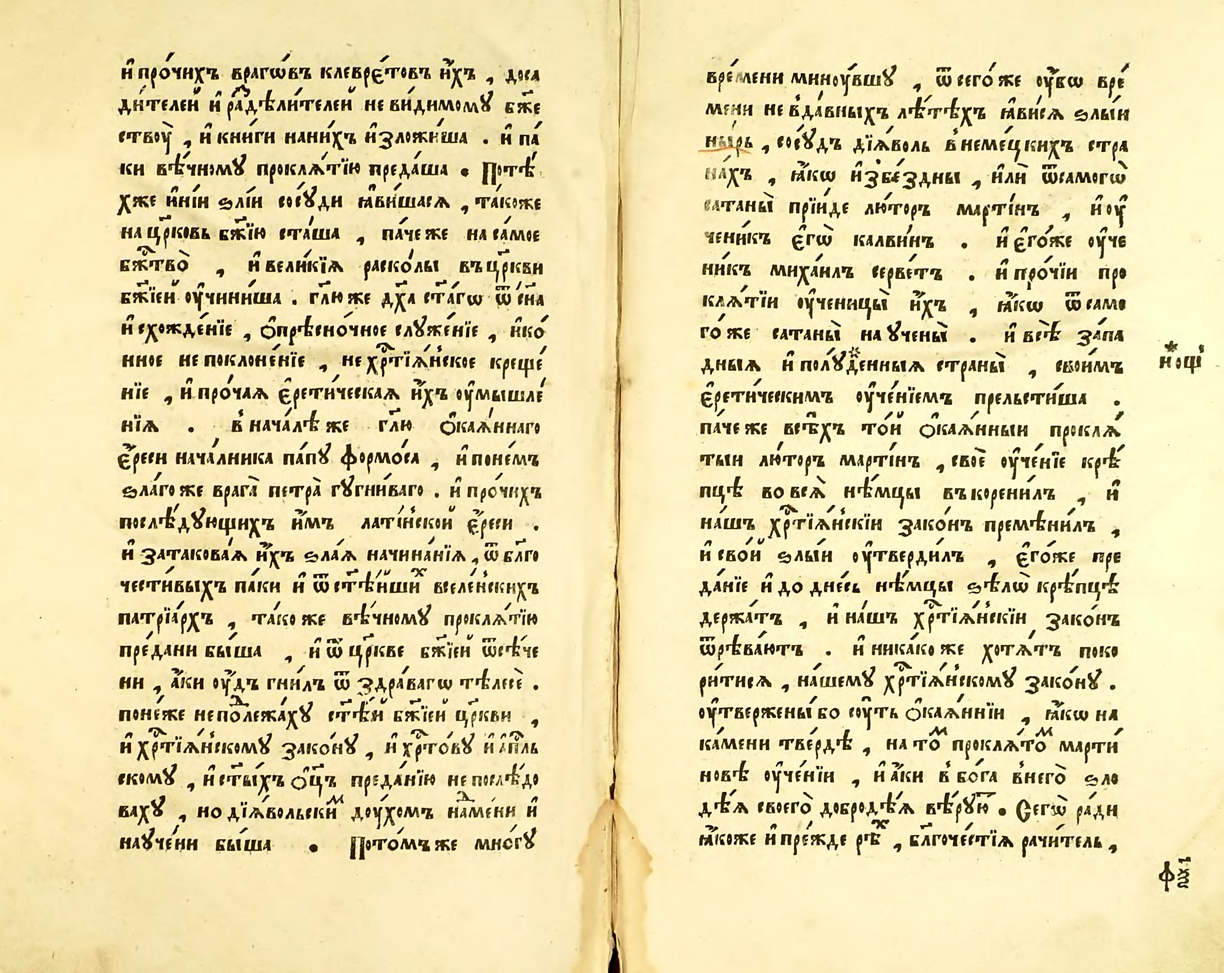 и҆ про́чихъ враго́въ клевре́товъ и҆́хъ , доса
ди́телей и҆ раⷥдѣли́телей не ви́димомꙋ бж҃е
ствꙋ̀ , и҆ кни́ги на ни́хъ и҆зложи́ша . и҆ па́
ки вѣ́чномꙋ прокля́тїю преда́ша . Пото́мъ
же и҆ні́и ѕлі́и сосꙋ́ди ꙗ҆ви́шася , та́коже
на цр҃ковь бж҃їю ста́ша , па́че же на са́мое
бжⷭ҇тво̀ , и҆ вели́кїѧ раско́лы въ цр҃кви
бж҃їей ᲂу҆чини́ша . гл҃ю же дх҃а ст҃а́гѡ ѿ сн҃а
и҆ схожде́нїе , ѻ҆прѣсно́чное слꙋже́нїе , и҆ко́
нное не поклоне́нїе , не хрⷭ҇тїѧ́нское креще́
нїе , и҆ про́чаѧ є҆рети́ческаѧ и҆́хъ ᲂу҆мышле́
нїѧ . в нача́лѣ же гл҃ю ѻ҆каѧ́ннаго
є҆́реси нача́лника па́пꙋ формо́са , и҆ по не́мъ
ѕла́го же врага̀ петра̀ гꙋгни́ваго . и҆ про́чихъ
послѣ́дꙋющихъ и҆̀мъ лати́нской є҆́реси .
и҆ за такова́ѧ и҆́хъ ѕла́ѧ начина́нїѧ , ѿ бл҃го
чести́выхъ па́ки и҆ ѿ ст҃ѣ́йшиⷯ вселе́нскихъ
патрїа́рхъ , та́коже вѣ́чномꙋ прокля́тїю
пре́дани бы́ша , и҆ ѿ цр҃кве бж҃їей ѿсѣ́че
ни , а҆́ки ᲂу҆́дъ гни́лъ ѿ здра́вагѡ тѣлесѐ .
поне́же не поⷣлежа́хꙋ ст҃ѣ́й бж҃їей цр҃кви ,
и҆ хрⷭ҇тїѧ́нскомꙋ зако́нꙋ , и҆ хрⷭ҇то́вꙋ и҆ а҆пⷭ҇ль
скомꙋ , и҆ ст҃ы́хъ ѻ҆ц҃ъ преда́нїю не послѣ́до
вахꙋ , но дїѧ́вольскиⷨ дꙋ́хомъ наⷣме́ни и҆
наꙋче́ни бы́ша . Пото́мъ же мно́гꙋ
вре́мени минꙋ́вшꙋ , ѿ сего́ же ᲂу҆́бѡ вре́
мени не в да́вныхъ лѣ́тѣхъ ꙗ҆ви́сѧ ѕлы́и
ны́рь , сосꙋ́дъ дїѧ́воль в неме́цкихъ стра
на́хъ , ꙗ҆́кѡ и҆з бе́здны , и҆лѝ ѿ самогѡ̀
сатаны̀ прїи́де лю́торъ марти́нъ , и҆ ᲂу҆
чени́къ є҆гѡ̀ калви́нъ . и҆ є҆го́же ᲂу҆че
ни́къ михаи́лъ серве́тъ . и҆ про́чїи про
кля́тїи ᲂу҆ченицы̀ и҆́хъ , ꙗ҆́кѡ ѿ само
го́ же сатаны̀ наꙋчены̀ . и҆ всѣ̀ за́па
дныѧ и҆ полꙋ́*денныѧ страны̀ , свои́мъ
є҆рети́ческимъ ᲂу҆че́нїемъ прельсти́ша .
па́че же всѣ́хъ то́й ѻ҆каѧ́нныи прокля́
тыи лю́торъ марти́нъ , своѐ ᲂу҆че́нїе крѣ́
пцѣ во всѧ̀ нѣ́мцы въкорени́лъ , и҆
на́шъ хрⷭ҇тїѧ́нскїи зако́нъ премѣни́лъ ,
и҆ сво́й ѕлы́и ᲂу҆тверди́лъ , є҆го́же пре
да́нїе и҆ до дне́сь нѣ́мцы ѕѣлѡ̀ крѣ́пцѣ
держа́тъ , и҆ на́шъ хрⷭ҇тїѧ́нскїи зако́нъ
ѿрѣва́ютъ . и҆ ника́ко же хотѧ́тъ поко
ри́тисѧ , на́шемꙋ хрⷭ҇тїѧ́нскомꙋ зако́нꙋ .
ᲂу҆твержены́ бо сꙋ́ть ѻ҆каѧ́ннїи , ꙗ҆́кѡ на
ка́мени тве́рдѣ , на тоⷨ прокля́тоⷨ марти́
новѣ ᲂу҆че́нїи , и҆ а҆́ки в бо́га в него̀ ѕло
дѣ́ѧ своего̀ добродѣ́ѧ вѣ́рꙋюⷮ . Сегѡ̀ ра́ди
ꙗ҆́коже и҆ пре́жде рѣⷯ , бл҃гоче́стїѧ рачи́тель ,
* и҆ нощ